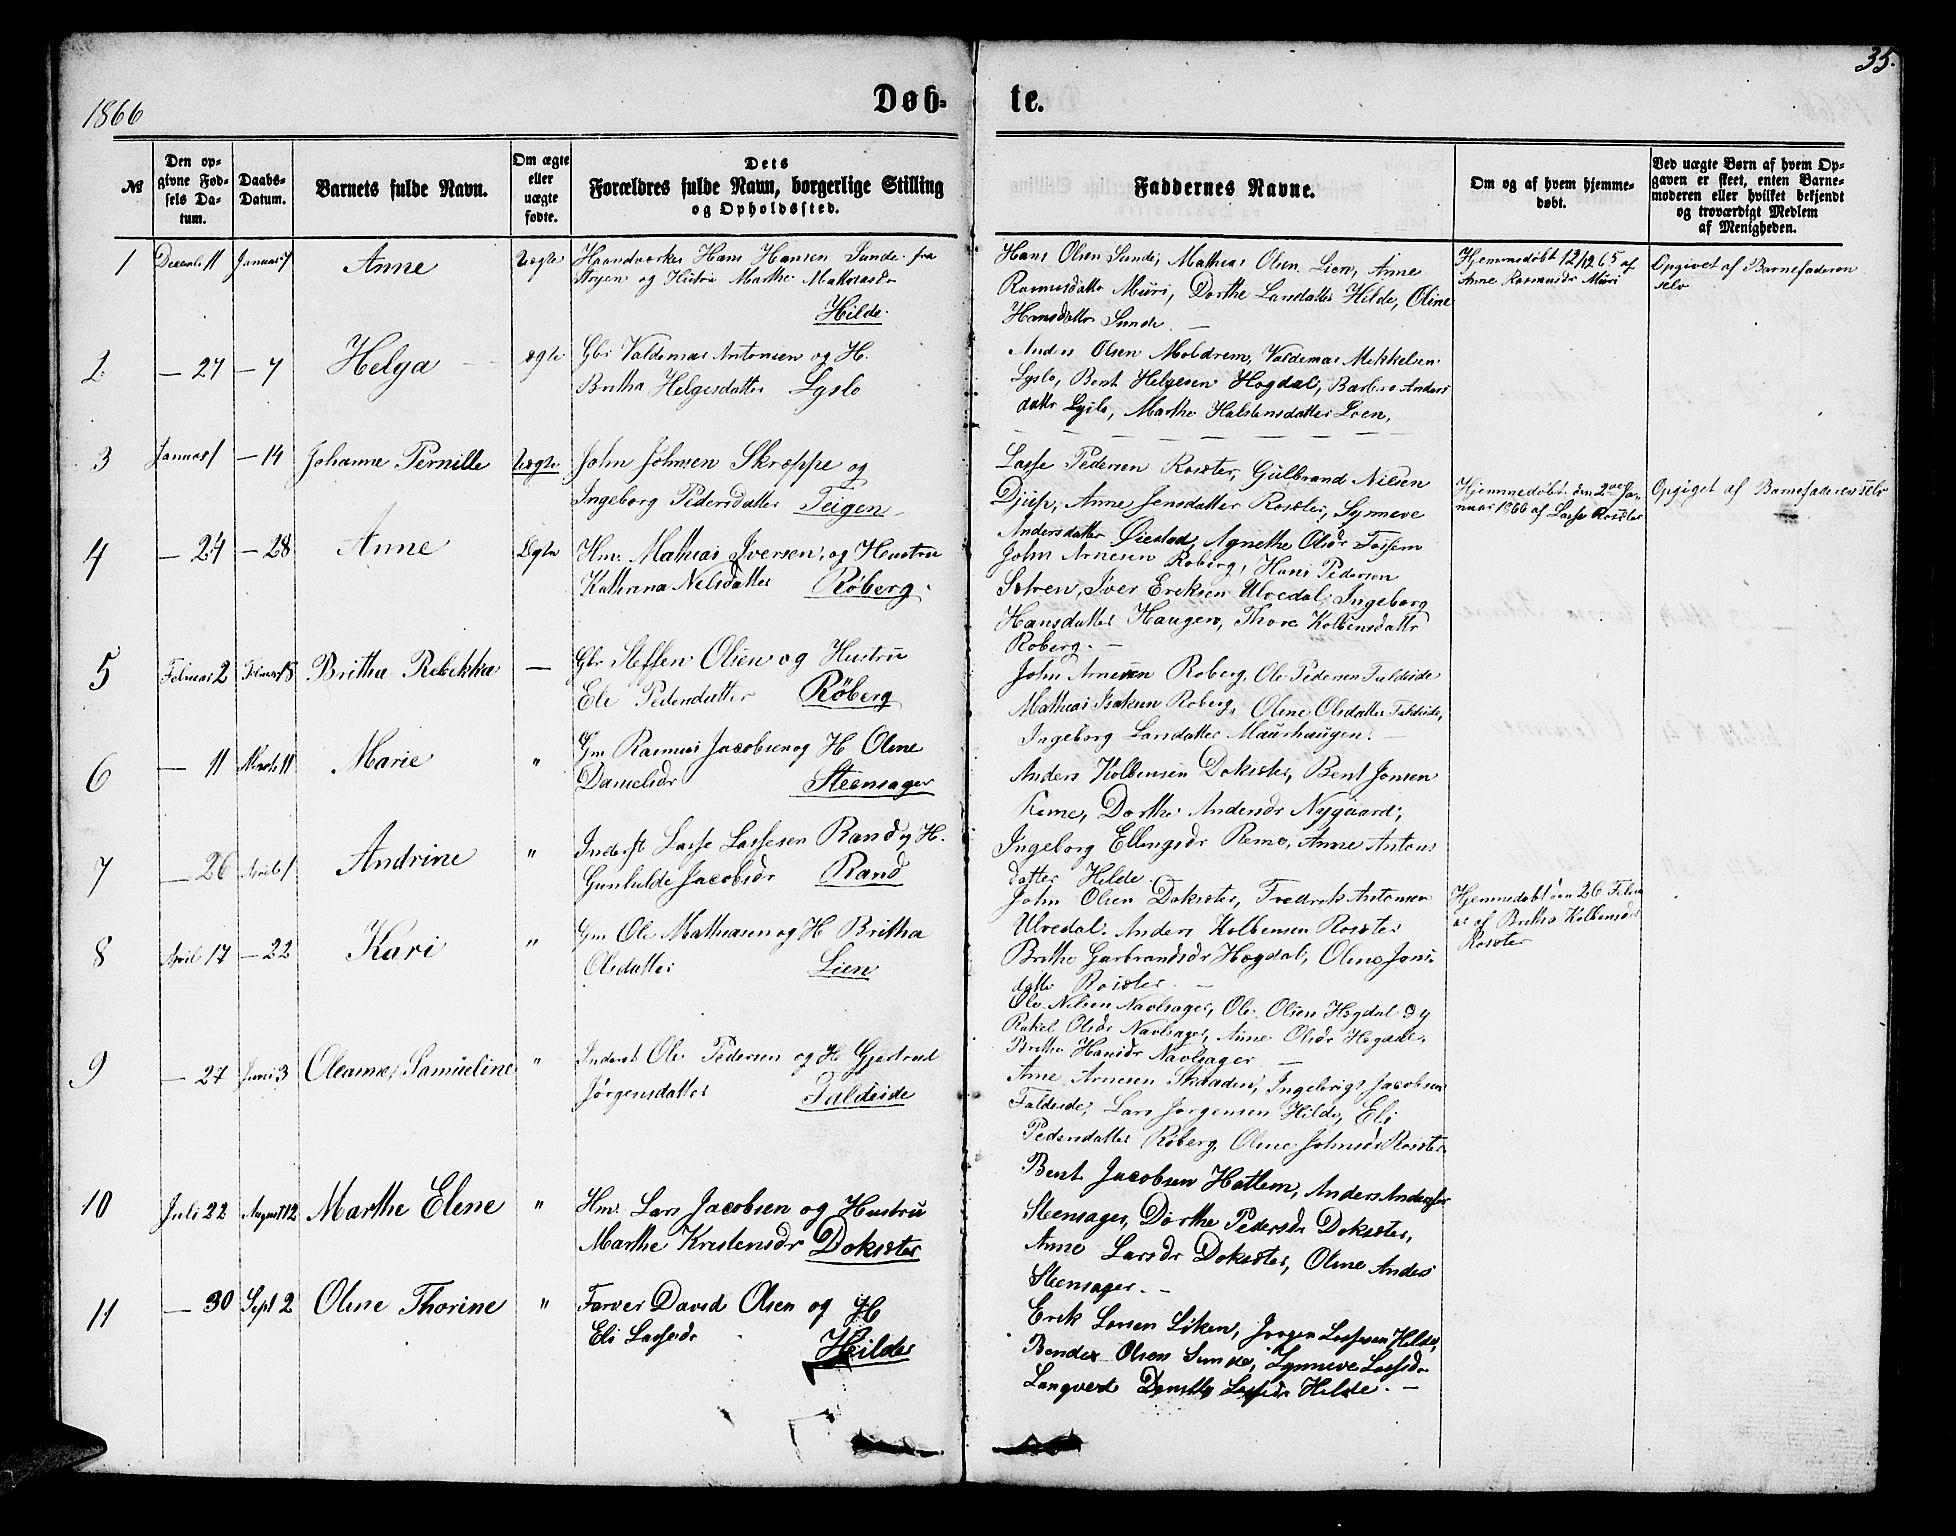 35.
1866
Døb-
te.
№
Den op-
givne Fød-
sels Da-
tum.
Daabs-
Datum.
Barnets fulde Navn.
Om ægte
eller
uægte
fødte.
Dets
Forældres fulde Navn, borgerlige Stilling
og Opholdssted.
Faddernes Navne.
Om og af hvem hjemme-
døbt.
Ved uægte Børn af hvem Op-
gaven er skeet, enten Barne-
moderen eller hvilket bekjendt
og troværdigt Medlem
af Menigheden.
1 Decemb. 11 Januar 7 Anne Uægte Haandværker Hans Hansen Sunde fra
Stryen og Hustru Marthe Mathiasdr
Hilde.
Hans Olsen Sunde, Mathias Olsen Lien, Anne
Rasmusdatter Muri, Dorthe Larsdatter Hilde, Oline
Hansdatter Sunde. —
Hjemmedøbt 12/12 65 af
Anne Rasmusdr Muri
Opgivet af Barnefaderen
selv
2. — 27 — 7 Helga ægte Gbr Valdemar Antonsen og H.
Britha Helgesdatter Lyslo
Anders Olsen Moldrem, Valdemar Mikkelsen
Lyslo, Bent Helgesen Hogdal, Barbro Anders
datter Lyslo, Marthe Halstensdatter Loen.
3 Januar 1 — 14 Johanne Pernille Uægte John Johnsen Skroppe og
Ingeborg Pedersdatter Teigen
Lasse Pedersen Roset, Gulbrand Nilsen
Djup, Anne Jensdatter, Synneve
Andersdatter Øiestad, Agnethe Olsdr Tossem
Hjemmedøbt den 2den Ja-
nuar 1866 af Lasse
Opgivet af Barnefaderen selv
4 — 24 — 28 Anne Ægte Hm. Mathias Iversen, og Hustru
Kathrina Nelsdatter Røberg.
John Arnesen Roberg, Hans Pedersen
Sølren, Iver Eriksen Ulvedal, Ingeborg
Hansdatter Haugen, Thore Kolbensdatter
Roberg. —
5 Februar 2 Februar 18 Britha Rebekka — Gbr Steffen Olsen og Hustru
Eli Pedersdatter Røberg
John Arnesen Roberg, Ole Pedersen Faldeide
Mathias Isaksen Roberg, Oline Olsdatter Faldeide,
Ingeborg Larsdatter Maurhaugen. —
6 — 11 Marts 11 Marie " Gm Rasmus Jacobsen og H Oline
Danielsdr Steensager
Anders Kolbensen, Bent Jonsen
Reme, Dorthe Andersdr Nygaard,
Ingeborg Ellingsdr Reme, Anne Antons
datter Hilde.
7 — 26 April 1 Andrine " Inderst Lasse Lassesen Rand og H.
Gunhilde Jacobsdr Rand
John Olsen, Fredrik Antonsen
Ulvedal, Anders Kolbensen
Brithe Garbrandsdr Hogdal, Oline Jons-
datter
Hjemmedøbt den 26 Febru
ar af Britha Kolbensdr
8 April 17 — 22 Kari " Gm Ole Mathiasen og H Britha
Olsdatter Lien
Ole Nilsen Navlsager, Ole Olsen Hogdal og
Rakel Olsdr Navlsager, Anne Olsdr Hogdal,
Brithe Hansdr Navlsager —
9 — 27 Juni 3 Oleanne Samueline " Inderst Ole Pedersen og H Gjertrud
Jørgensdatter Faldeide
Arne Arnesen Skraaden, Ingebrigt Jacobsen
Faldeide, Lars Jørgensen Hilde, Eli
Pedersdatter Roberg, Oline Johnsdr
10 Juli 22 August 12 Marthe Elene " Hm. Lars Jacobsen og Hustru
Marthe Kristensdr Dokseter
Bent Jacobsen Hatlem, Anders Andersen
Steensager, Dorthe Pedersdr Dokseter,
Anne Larsdr Dokseter, Oline Anders
Steensager. —
11 — 30 Sept 2 Oline Thorine " Farver David Olsen og H
Eli Lassesdr Hilde
Erik Larsen, Jørgen Lassesen Hilde,
Bendex Olsen Sunde, Synneve Lassesdr
Langved Lassesdr Hilde. —